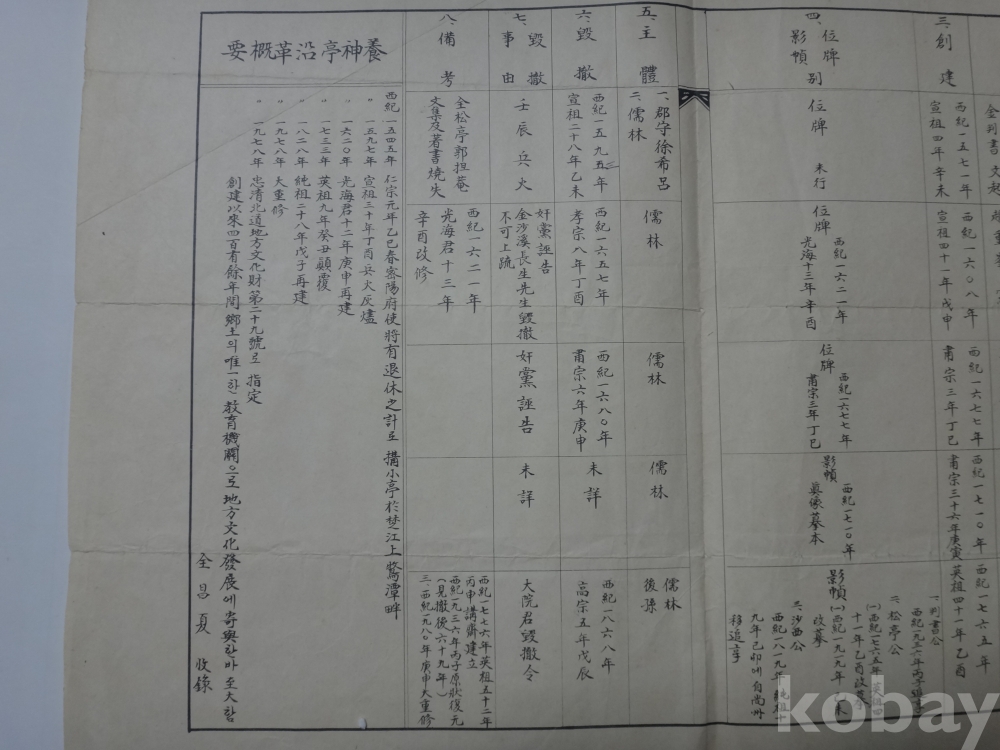 三、創建
西紀一五七一年
宣祖四年辛未
西紀一六〇八年
宣祖四十一年戊申
西紀一六七七年
肅宗三年丁巳
西紀一七一〇年
肅宗三十六年庚寅
西紀一七六五年
英祖四十一年乙酉
四、位牌
影幀
別
位牌
未行
位牌
西紀一六二一年
光海十三年辛酉
位牌
西紀一六七七年
肅宗三年丁巳
影幀
西紀一七一〇年
眞像摹本
影幀
一、判書公
二、松亭公
(一)西紀一七六五年英祖四
十一年乙酉改摹
(二)西紀一九一九年
改摹
三、沙西公
西紀一八一九年純祖十
九年己卯에自尙州
移追享
五、主體
一、郡守徐希呂
二、儒林
儒林
儒林
儒林
儒林
後孫
六、毀撤
西紀一五九五年
宣祖二十八年乙未
西紀一六五七年
孝宗八年丁酉
西紀一六八〇年
肅宗六年庚申
未詳
西紀一八六八年
高宗五年戊辰
七、毀撤
事由
壬辰兵火
奸黨誣告
金沙溪長生先生毀撤
不可上疏
奸黨誣告
未詳
大院君毀撤令
八、備考
全松亭郭担菴
文集及著書燒失
西紀一六二一年
光海君十三年
辛酉改修
西紀一七七六年英祖五十二年
丙申講齋建立
西紀一九三六年丙子原狀復元
(見撤後六十九年)
三、西紀一九八〇年庚申大重修
養神亭沿革概要
西紀一五四五年 仁宗元年乙巳春密陽府使將有退休之計로 搆小亭於楚江上鷺潭畔
〃 一五九七年 宣祖三十年丁酉兵火灰燼
〃 一六二〇年 光海君十二年庚申再建
〃 一七三三年 英祖九年癸丑顚覆
〃 一八二八年 純祖二十八年戊子再建
〃 一九七八年 大重修
〃 一九七八年 忠淸北道地方文化財第二十九號로 指定
創建以來四百有餘年間鄕土의 唯一한 敎育機關으로 地方文化發展에 寄與한바 至大함
全昌夏 收錄
kobay